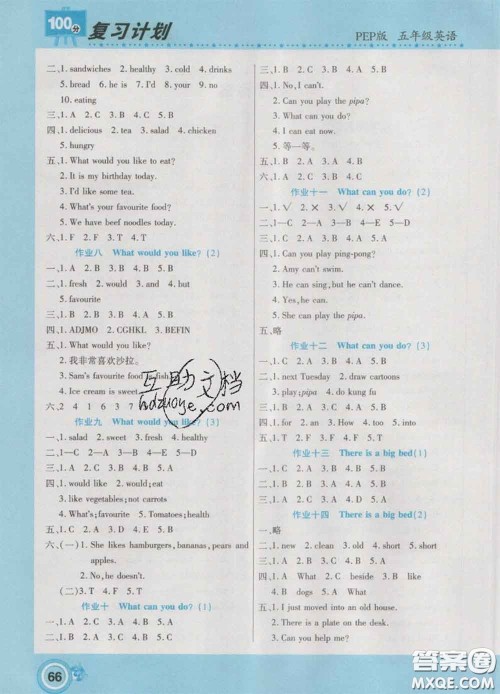 100分 复习计划
PEP版 五年级英语
二、1. sandwiches 2. healthy 3. cold 4. drinks
5. bread 6. he is 7. I'd 8. your 9. no
10. eating
三、1. A 2. C 3. B 4. B 5. A
四、1. delicious 2. tea 3. salad 4. chicken
5. hungry
五、1. What would you like to eat?
2. It is my birthday today.
3. I'd like some tea.
4. What's your favourite food?
5. We have beef noodles today.
六、1. F 2. F 3. T 4. T
作业八 What would you like? (2)
一、1. A 2. B 3. B 4. A 5. B
二、1. fresh 2. would 3. and 4. but
5. favourite
三、1. C 2. A 3. B 4. A 5. B
四、1. ADJMO 2. CGHKL 3. BEFIN
五、1. What would you like?
2. 我非常喜欢沙拉。
3. Sam's favourite food is fish.
4. Ice cream is sweet.
六、2 4 1 6 3 7
作业九 What would you like? (3)
一、1. salad 2. sweet 3. fresh 4. healthy
二、1. B 2. A 3. C 4. B
三、1. B 2. A 3. B 4. A 5. C
四、1. like 2. would; would; eat
3. like vegetables; not carrots
4. What's; favourite 5. Tomatoes; health
五、1. C 2. A 3. D 4. E 5. B
六、(一)1. She likes hamburgers, bananas, pears and
apples.
2. No, he doesn't.
(二)3. T 4. F 5. T
作业十 What can you do? (1)
一、1. C 2. B 3. A 4. B 5. B
二、1. A 2. A 3. B 4. B 5. A
三、1. B 2. C 3. A 4. C 5. B
四、1. No, I can't.
2. Can you play the pipa?
3. What can you do?
4. I can eat now.
5. 等一等。
五、1. B 2. C 3. A 4. C 5. A
作业十一 What can you do? (2)
一、1. √ 2. × 3. × 4. √ 5. √
二、1—C 2—A 3—B 4—E 5—D
三、1. C 2. A 3. B 4. A 5. B
四、1. Can you play ping-pong?
2. Amy can't swim.
3. He can sing, but he can't dance.
4. Yes, he can.
5. She can play the pipa.
五、略
作业十二 What can you do? (3)
一、1. C 2. B 3. A 4. B 5. C
二、1. next Tuesday 2. draw cartoons
3. play, pipa 4. do kung fu
三、1. B 2. C 3. B 4. B 5. C
四、1. for 2. an 3. How 4. too 5. into
五、1—C 2—A 3—D 4—B 5—E
作业十三 There is a big bed(1)
一、1. C 2. B 3. A 4. C 5. B
三、1. C 2. A 3. B 4. A 5. A
作业十四 There is a big bed(2)
一、略
二、1. new 2. clean 3. old 4. short
5. short
三、1. B 2. C 3. A 4. B 5. B
四、1. A What 2. beside 3. C has
4. B dogs 5. A are
五、1. I just moved into an old house.
2. There is a plate on the desk.
3. Can you help me?
66
互助文档
hdzuoye.com
答案圈
MXQE.COM